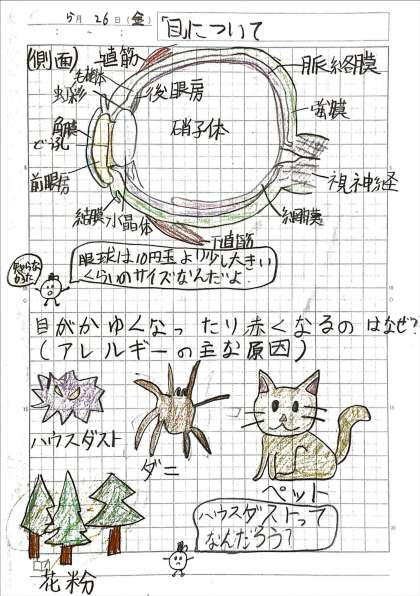 5月26日(金)
「目」について
(側面)
上直筋
毛様体
虹彩
後眼房
脈絡膜
強膜
角膜
硝子体
前眼房
視神経
結膜
水晶体
網膜
下直筋
知らなかった
眼球は10円玉より少し大きい
くらいのサイズなんだよ。
目がかゆくなったり赤くなるのはなぜ?
(アレルギーの主な原因)
ハウスダスト
ダニ
ペット
ハウスダストって
なんだろう?
花粉